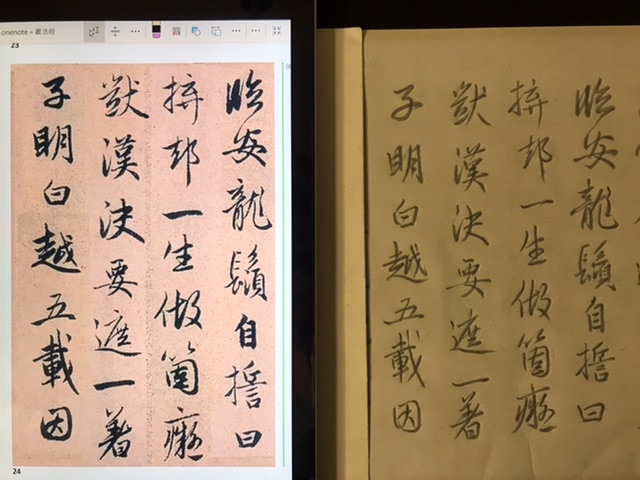 onenote » 書法經
23
臨安龍鬚自誓曰
拚却一生做箇癡
獃漢決要遮一著
子明白越五載因
24
臨安龍鬚自誓曰
拚却一生做箇癡
獃漢決要遮一著
子明白越五載因